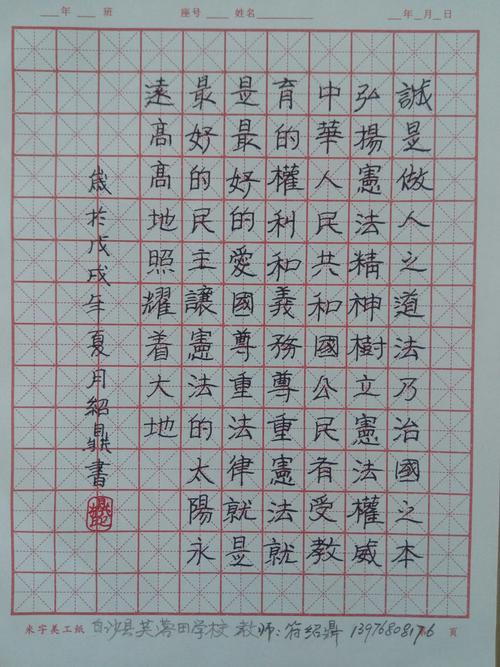 ___年 ___班 座号____ 姓名________ ___年__月__日
誠是做人之道法乃治國之本
弘揚憲法精神樹立憲法權威
中華人民共和國公民有受教
育的權利和義務尊重憲法就
是最好的愛國尊重法律就是
最好的民主讓憲法的太陽永
遠高高地照耀着大地
歲於戊戌年夏月紹鼎書
米字美工纸 页
白沙县芙蓉田学校 教师:符绍鼎 13976808176